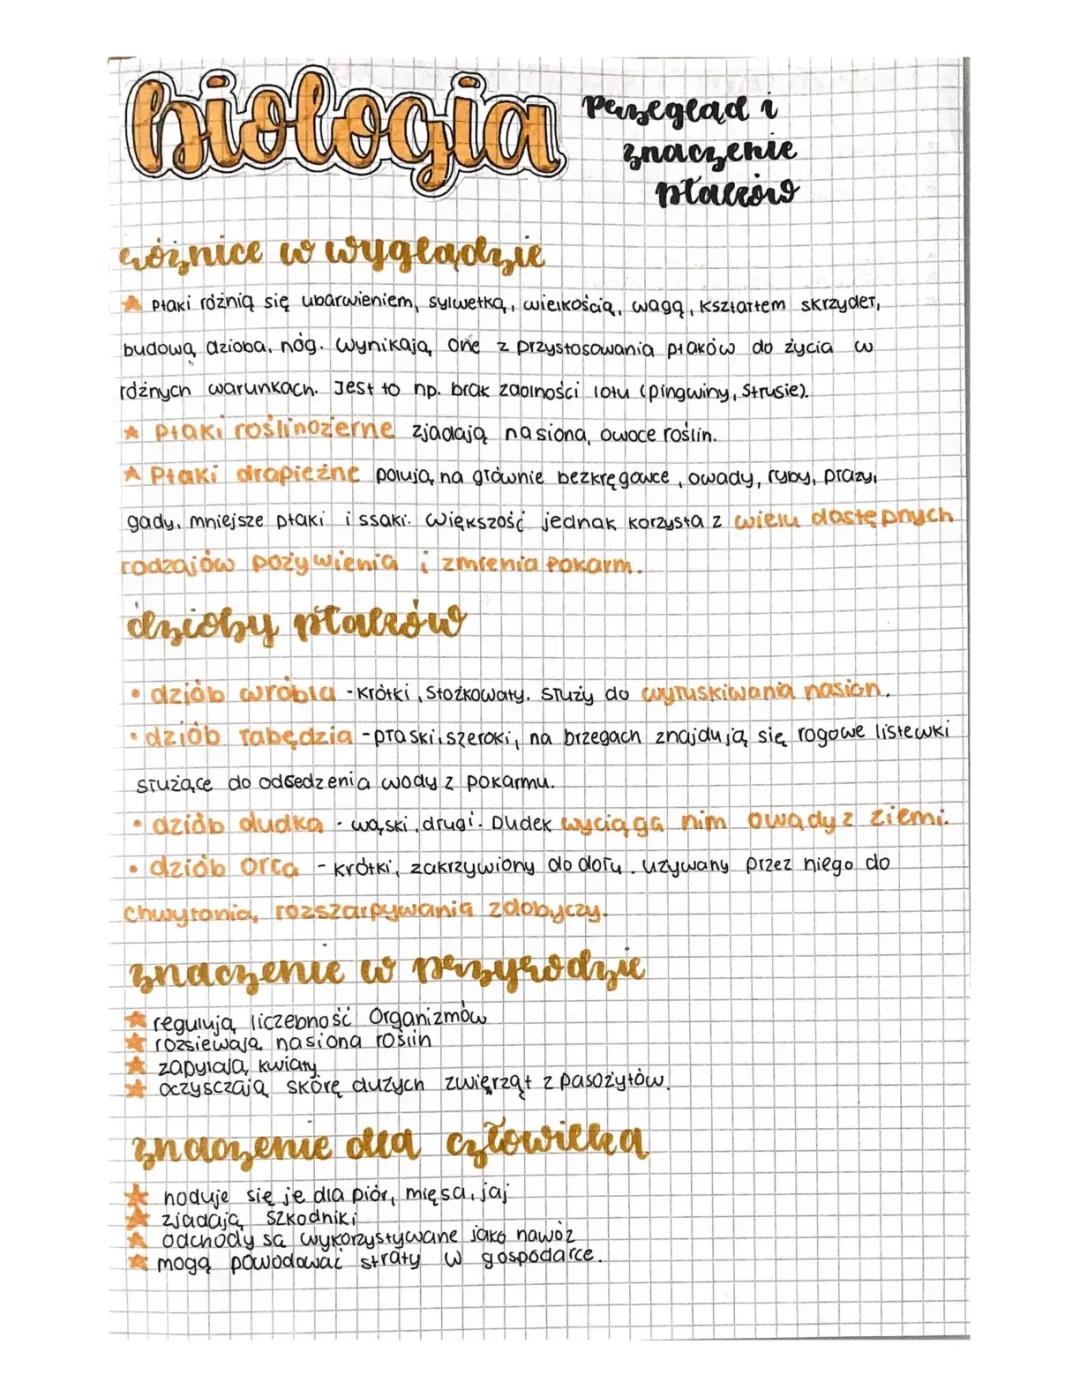 biologia
Przegląd i
znaczenie
ptaków
różnice w wyglądzie
Ptaki różnią się ubarwieniem, sylwetką, wielkością, wagą, kształtem skrzydeł,
budową dzioba, nóg. Wynikają one z przystosowania ptaków do życia w
różnych warunkach. Jest to np. brak zdolności lotu (pingwiny, strusie).
Ptaki roślinożerne zjadają nasiona, owoce roślin.
Ptaki drapieżne polują na głównie bezkręgowce, owady, ryby, płazy,
gady, mniejsze ptaki i ssaki. Większość jednak korzysta z wielu dostępnych
rodzajów pożywienia i zmienia pokarm.
dzioby ptaków
• dziób wróbla - krótki, stożkowaty. Służy do wyłuskiwania nasion.
• dziób łabędzia - płaski, szeroki, na brzegach znajdują się rogowe listewki
służące do odsedzenia wody z pokarmu.
• dziób dudka - wąski, długi. Dudek wyciąga nim owady z ziemi.
• dziób orła - krótki, zakrzywiony do dołu. używany przez niego do
chwytania, rozszarpywania zdobyczy.
znaczenie w przyrodzie
regulują liczebność organizmów
rozsiewają nasiona roślin
zapylają kwiaty
oczyszczają skórę dużych zwierząt z pasożytów.
znaczenie dla człowieka
hoduje się je dla piór, mięsa, jaj
zjadają szkodniki
odchody są wykorzystywane jako nawóz
mogą powodować straty w gospodarce.